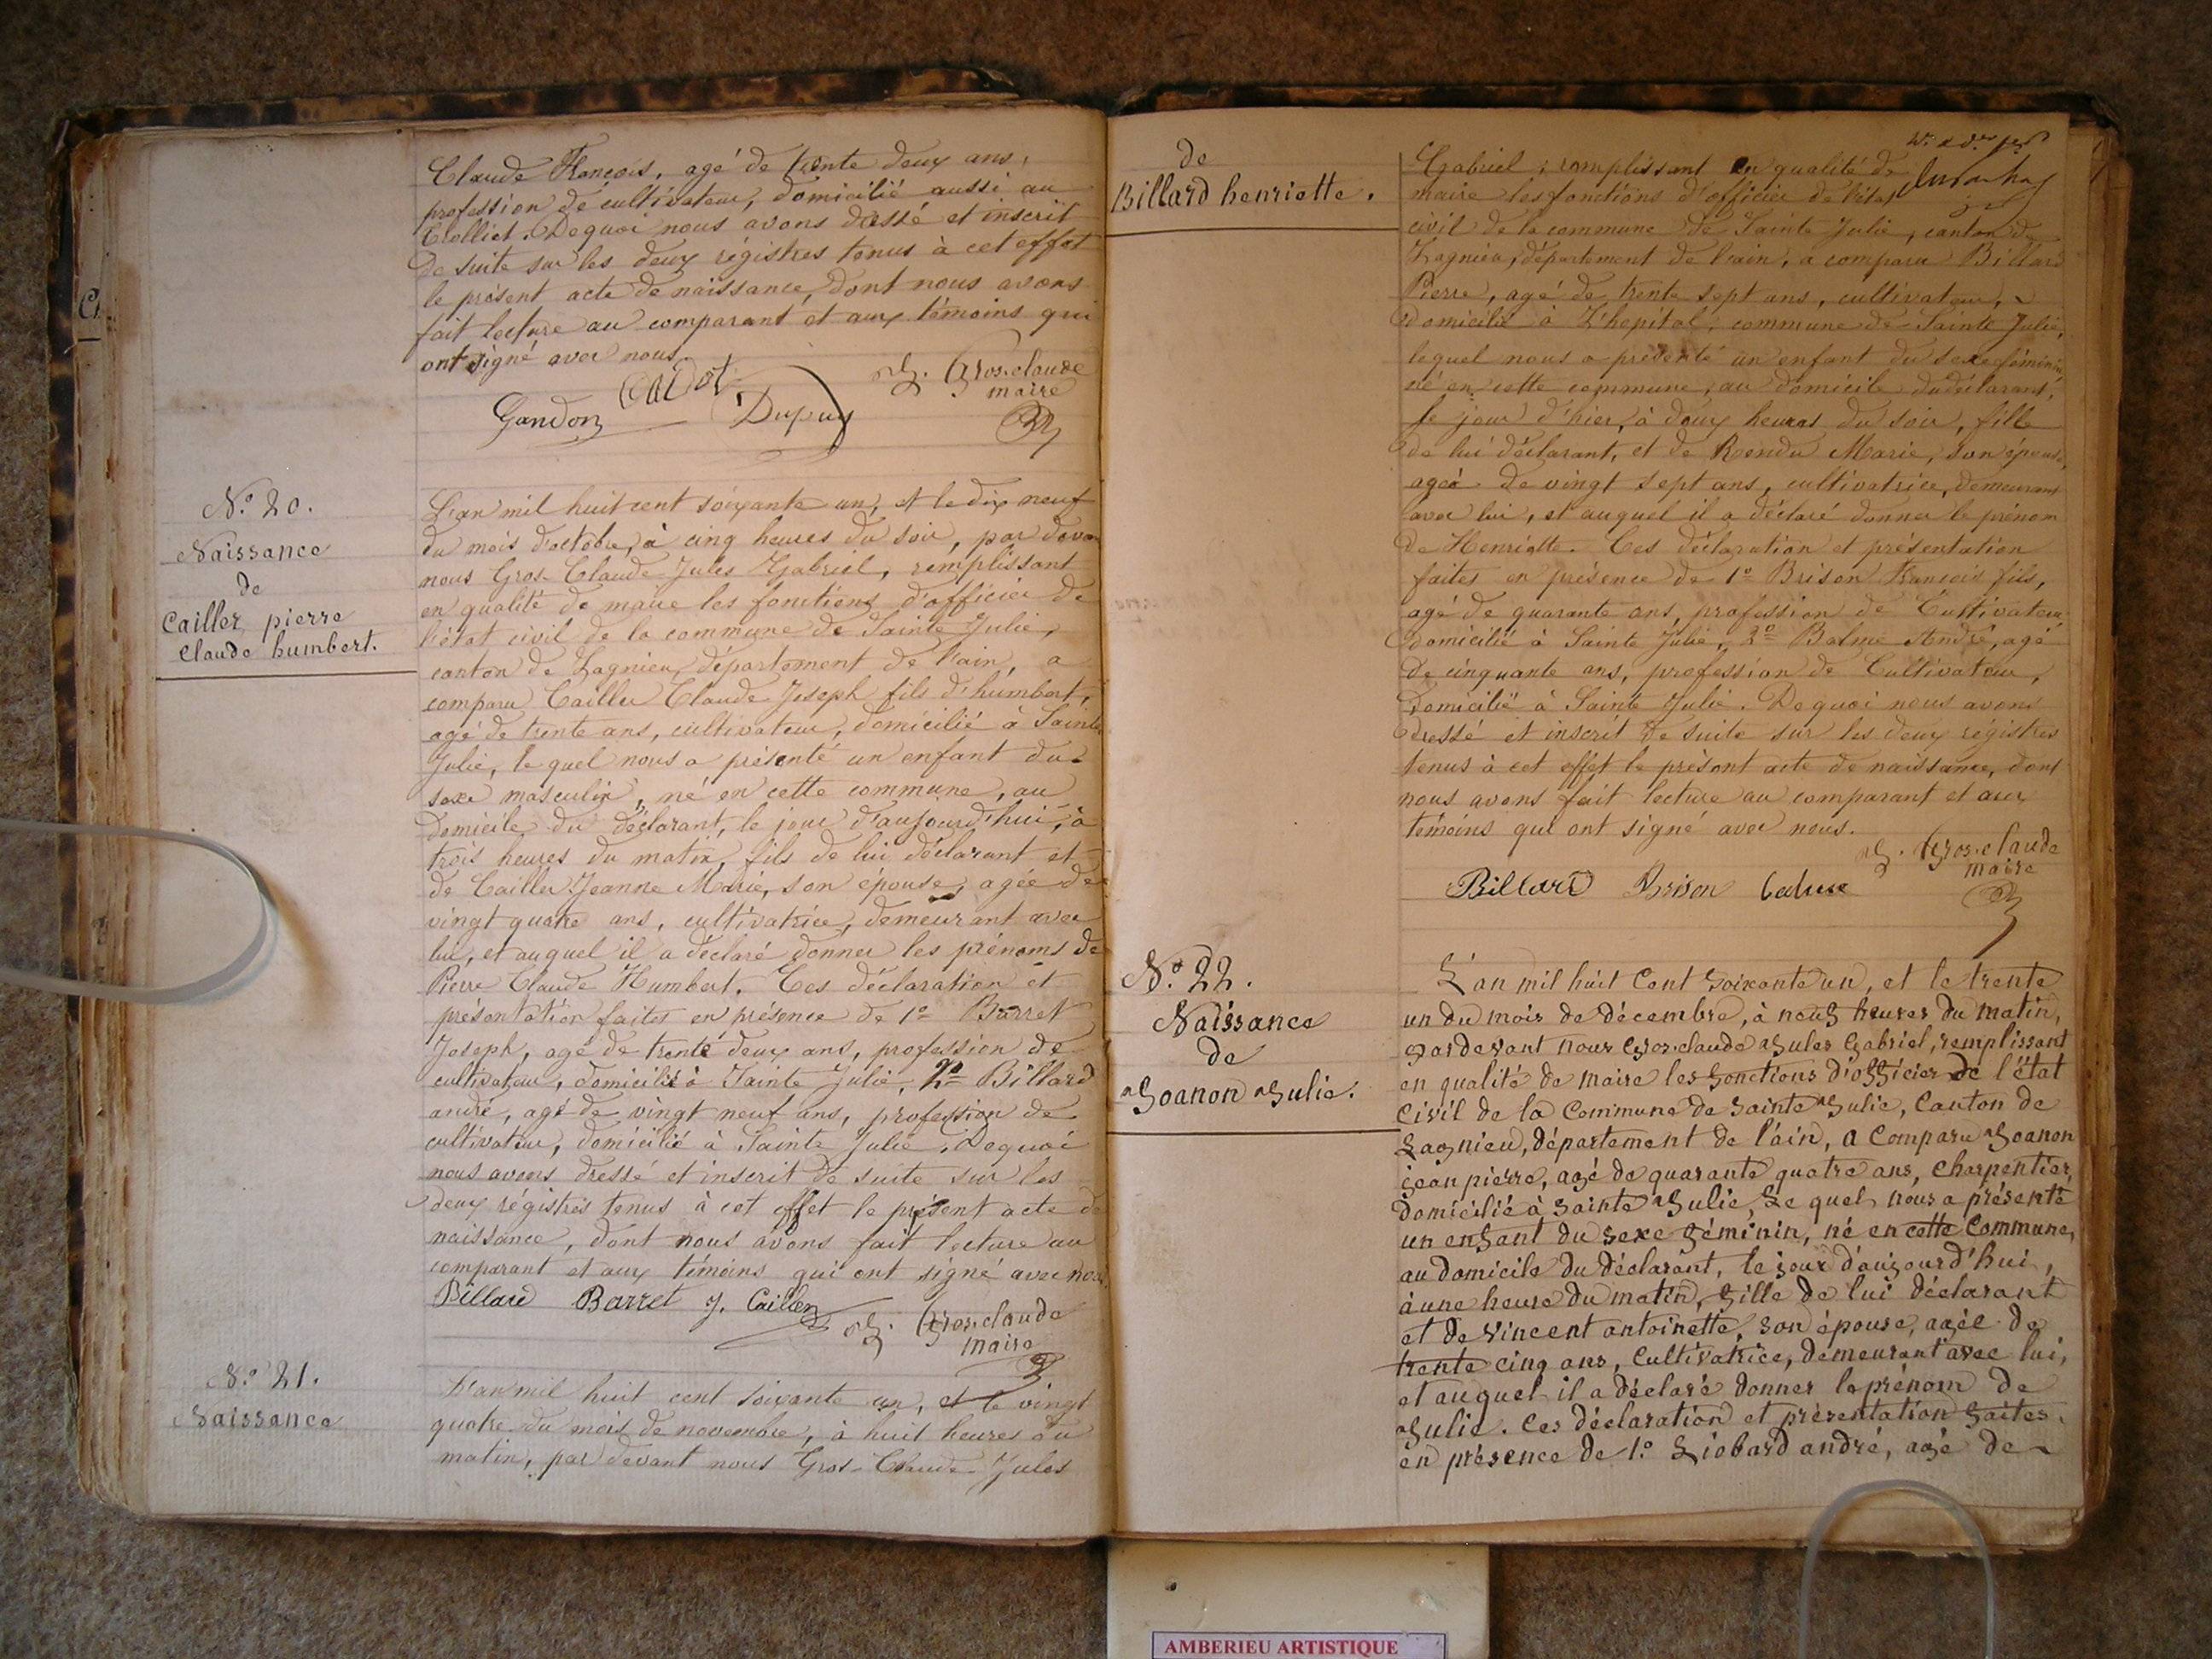 Claude François, agé de trente deux ans,
profession de cultivateur, domicilié aussi au
Trolliet. Dequoi nous avons dressé et inscrit
de suite sur les deux régistres tenus à cet effet
le présent acte de naissance, dont nous avons
fait lecture au comparant et aux témoins qui
ont signé avec nous.
J. Gros-claude
maire
Gandon Cadot Dupuy
N.º 20.
Naissance
de
Cailler pierre
Claude humbert.
L'an mil huit cent soixante un, et le dix neuf
du mois d'octobre, à cinq heures du soir, par devant
nous Gros-Claude Jules Gabriel, remplissant
en qualité de maire les fonctions d'officier de
l'état civil de la commune de Sainte Julie,
canton de Lagnieu, département de l'ain, a
comparu Cailler Claude Joseph fils d'humbert,
agé de trente ans, cultivateur, domicilié à Sainte
Julie, le quel nous a présenté un enfant du
sexe masculin, né en cette commune, au
domicile du déclarant, le jour d'aujourd'hui, à
trois heures du matin, fils de lui déclarant et
de Cailler Jeanne Marie, son épouse, agée de
vingt quatre ans, cultivatrice, demeurant avec
lui, et auquel il a déclaré donner les prénoms de
Pierre Claude Humbert. Ces déclaration et
présentation faites en présence de 1º Barret
Joseph, agé de trente deux ans, profession de
cultivateur, domicilié à Sainte Julie, 2º Billard
andré, agé de vingt neuf ans, profession de
cultivateur, domicilié à Sainte Julie. Dequoi
nous avons dressé et inscrit de suite sur les
deux régistres tenus à cet effet le présent acte de
naissance, dont nous avons fait lecture au
comparant et aux témoins qui ont signé avec nous
Billard Barret J. Cailler
J. Gros-claude
maire
N.º 21.
Naissance
L'an mil huit cent soixante un, et le vingt
quatre du mois de novembre, à huit heures du
matin, par devant nous Gros-Claude Jules
de
Billard henriette.
Gabriel, remplissant en qualité de
maire les fonctions d'officier de l'état
civil de la commune de Sainte Julie, canton de
Lagnieu, département de l'ain, a comparu Billard
Pierre, agé de trente sept ans, cultivateur,
domicilié à L'hopital, commune de Sainte Julie,
lequel nous a présenté un enfant du sexe féminin,
né en cette commune, au domicile du déclarant,
le jour d'hier, à deux heures du soir, fille
de lui déclarant, et de Rendu Marie, son épouse,
agée de vingt sept ans, cultivatrice, demeurant
avec lui, et auquel il a déclaré donner le prénom
de Henriette. Ces déclaration et présentation
faites en présence de 1º Brison François fils,
agé de quarante ans, profession de Cultivateur
domicilié à Sainte Julie, 2º Balme André, agé
de cinquante ans, profession de Cultivateur,
Domicilié à Sainte Julie. De quoi nous avons
dressé et inscrit de suite sur les deux régistres
tenus à cet effet le présent acte de naissance, dont
nous avons fait lecture au comparant et aux
témoins qui ont signé avec nous.
J. Gros-claude
maire
Billard Brison
N.º 22.
Naissance
de
Joanon Julie.
L'an mil huit Cent soixante un, et le trente
un du mois de décembre, à neuf heures du matin,
pardevant nous Gros-claude Jules Gabriel, remplissant
en qualité de maire les fonctions d'officier de l'état
Civil de la Commune de sainte Julie, Canton de
Lagnieu, département de l'ain, a Comparu Joanon
jean pierre, agé de quarante quatre ans, Charpentier,
domicilié à sainte Julie, Le quel nous a présenté
un enfant du sexe féminin, né en cette Commune,
au domicile du déclarant, le jour d'aujourd'hui,
à une heure du matin, fille de lui déclarant
et de Vincent antoinette, son épouse, agée de
trente cinq ans, Cultivatrice, demeurant avec lui,
et auquel il a déclaré donner le prénom de
Julie. Ces déclaration et présentation faites
en présence de 1.º Liobard andré, agé de
AMBERIEU ARTISTIQUE